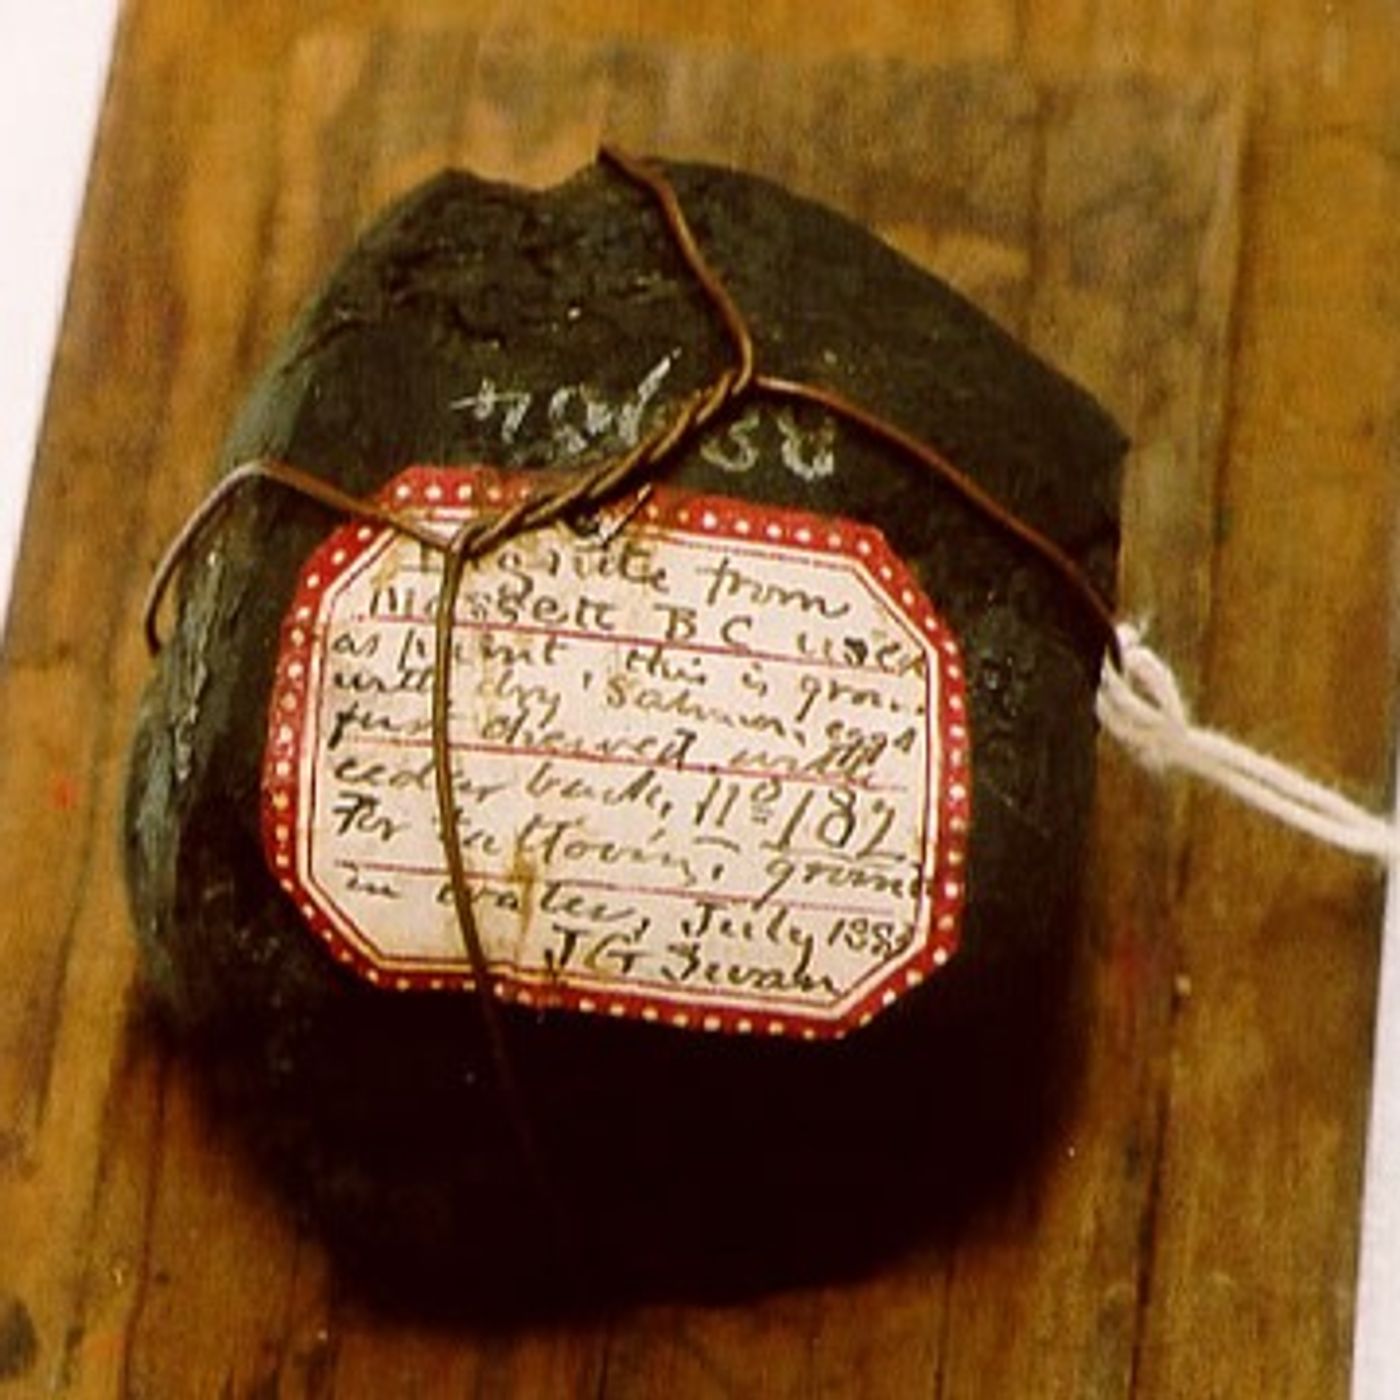 Lignite from
Massett BC used
as paint, this is
with dry Salmon eggs
first chewed with
cedar bark, No 187
For tattooing ground
in water, July
J G Swan